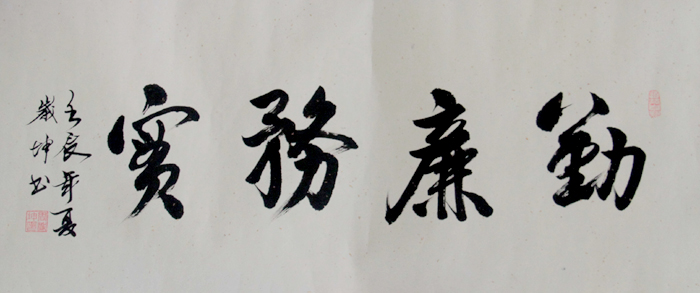 勤廉務實
壬辰年夏
崴坤书